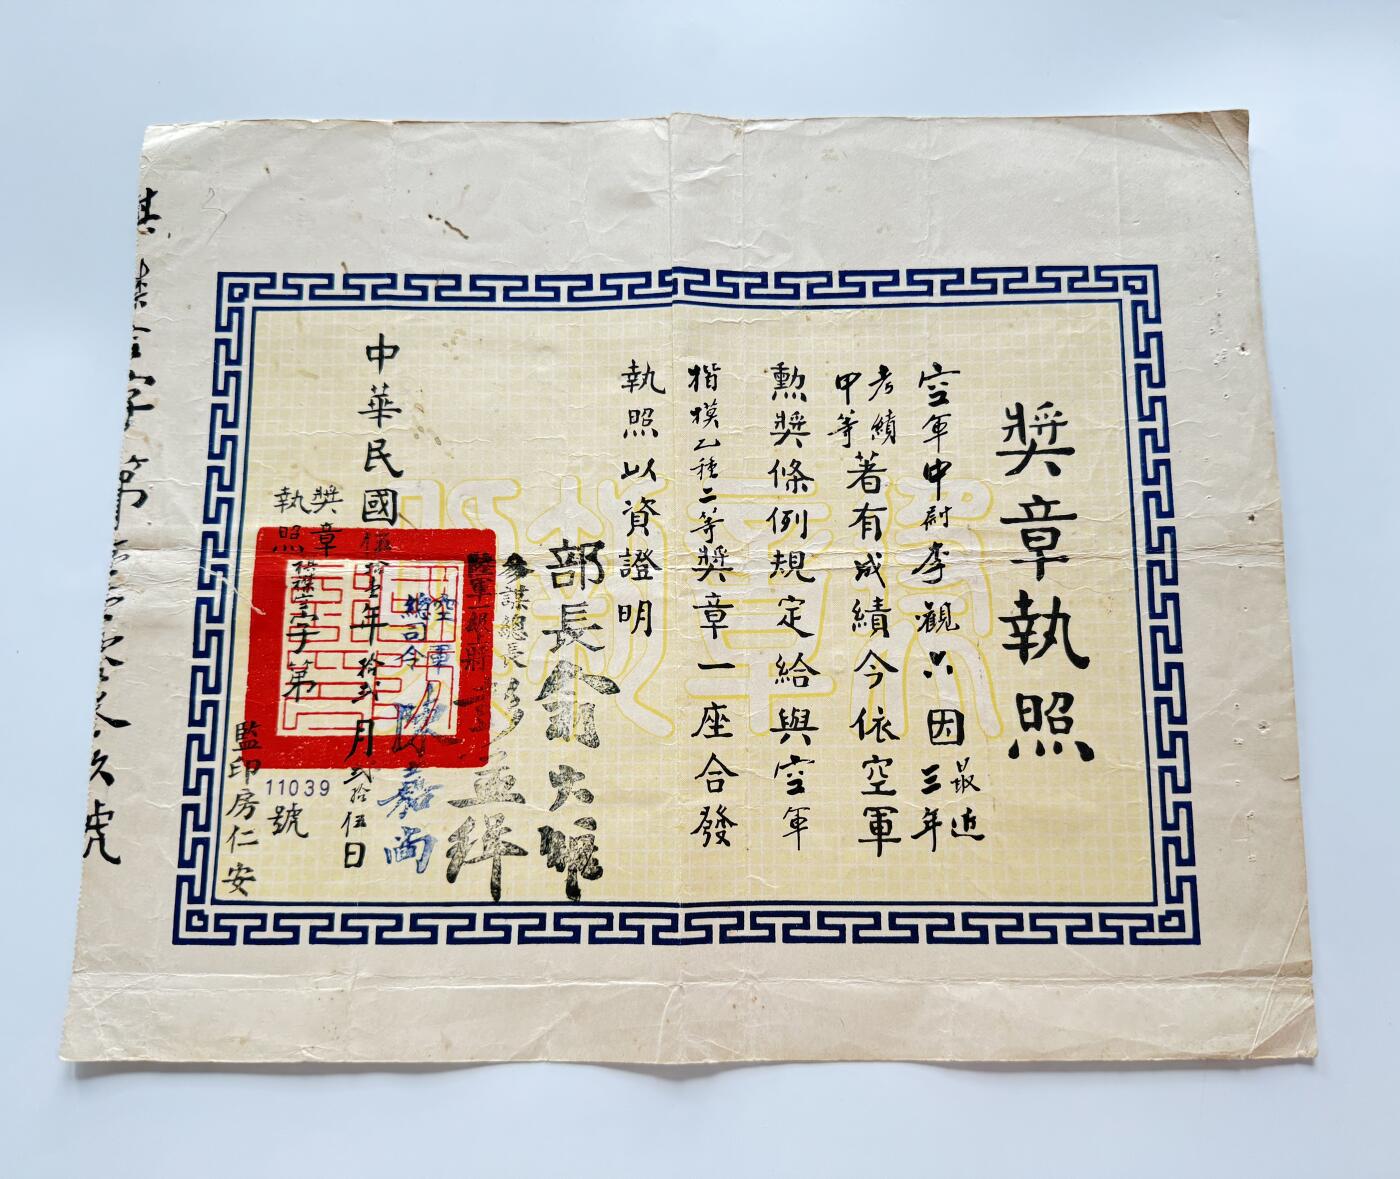 獎章執照
空軍中尉李觀六因最近三年
考績甲等著有成績今依空軍
勲獎條例規定給與空軍
楷模乙種二等獎章一座合發
執照以資證明
部長俞大維
參謀總長
陸軍一級上將彭孟緝
空軍總司令陳嘉尚
中華民國 年拾貳月貳拾伍日
獎章執照 字第11039號
監印房仁安
字第 號